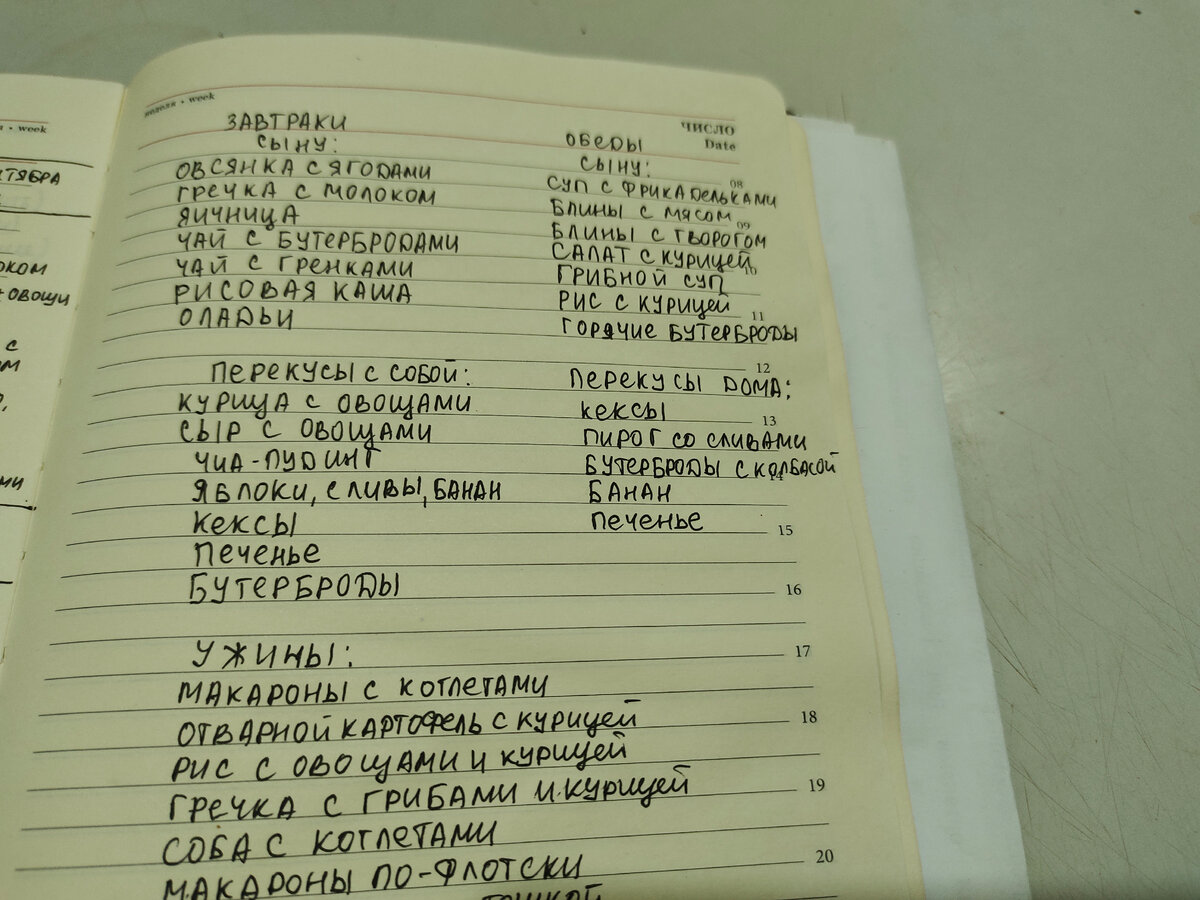 я • week
КТЯБРА
ОКОМ
+ ОВОЩИ
С
неделя • week
ЧИСЛО
Date
ЗАВТРАКИ
СЫНУ:
ОВСЯНКА С ЯГОДАМИ
ГРЕЧКА С МОЛОКОМ
ЯИЧНИЦА
ЧАЙ С БУТЕРБРОДАМИ
ЧАЙ С ГРЕНКАМИ
РИСОВАЯ КАША
ОЛАДЬИ
ОБЕДЫ
СЫНУ:
08
СУП С ФРИКАДЕЛЬКАМИ
БЛИНЫ С МЯСОМ
09
БЛИНЫ С ТВОРОГОМ
САЛАТ С КУРИЦЕЙ
10
ГРИБНОЙ СУП
РИС С КУРИЦЕЙ
11
ГОРЯЧИЕ БУТЕРБРОДЫ
12
ПЕРЕКУСЫ С СОБОЙ:
КУРИЦА С ОВОЩАМИ
СЫР С ОВОЩАМИ
ЧИА-ПУДИНГ
ЯБЛОКИ, СЛИВЫ, БАНАН
КЕКСЫ
ПЕЧЕНЬЕ
БУТЕРБРОДЫ
ПЕРЕКУСЫ ДОМА:
КЕКСЫ
13
ПИРОГ СО СЛИВАМИ
БУТЕРБРОДЫ С КОЛБАСОЙ
14
БАНАН
ПЕЧЕНЬЕ
15
16
УЖИНЫ:
17
МАКАРОНЫ С КОТЛЕТАМИ
ОТВАРНОЙ КАРТОФЕЛЬ С КУРИЦЕЙ
18
РИС С ОВОЩАМИ И КУРИЦЕЙ
ГРЕЧКА С ГРИБАМИ И КУРИЦЕЙ
19
СОБА С КОТЛЕТАМИ
20
МАКАРОНЫ ПО-ФЛОТСКИ